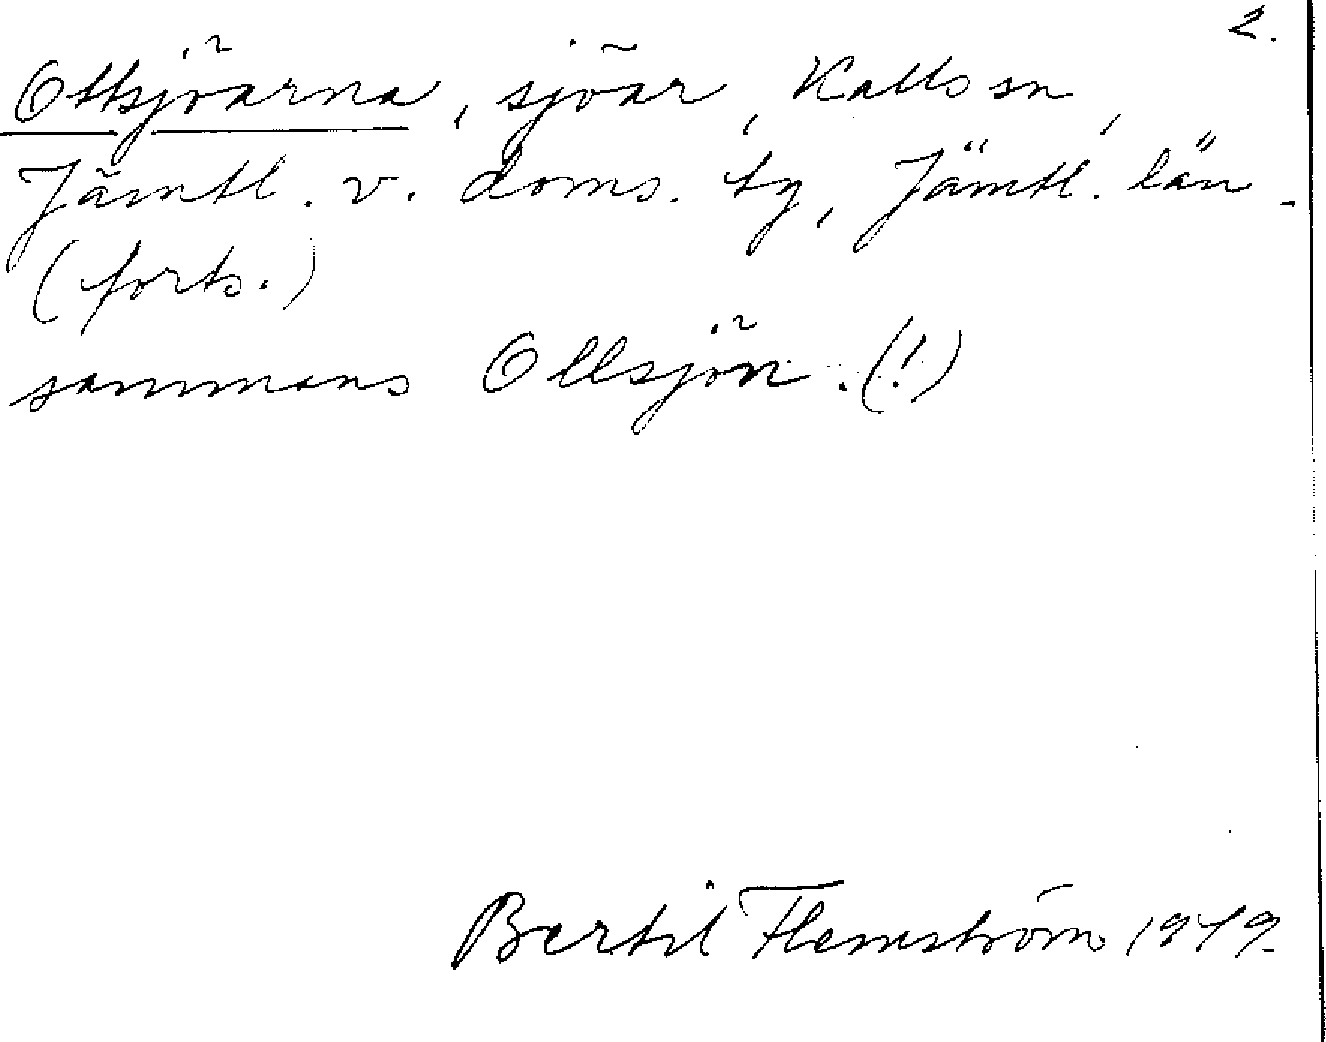 2.
Ottsjöarna, sjöar, Kalls sn,
Jämtl. v. doms. tg, Jämtl. län.
(forts.)
sammans Ollsjön. (!)
Bertil Flemström 1979.